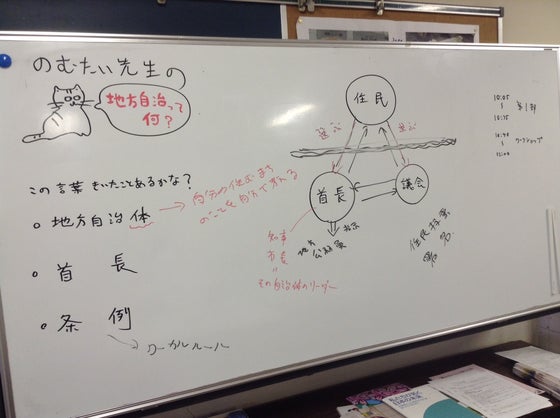 のむたい先生の
地方自治って
何?
この言葉 きいたことあるかな?
地方自治体
自分の住むまち
のことを自分で考える
首長
条例
ローカルルール
住民
選ぶ
選ぶ
首長
議会
知事
市長
〃
その自治体のリーダー
地方
公務員
指示
住民投票
署名
10:05
〜
第1部
〜
ワークショップ